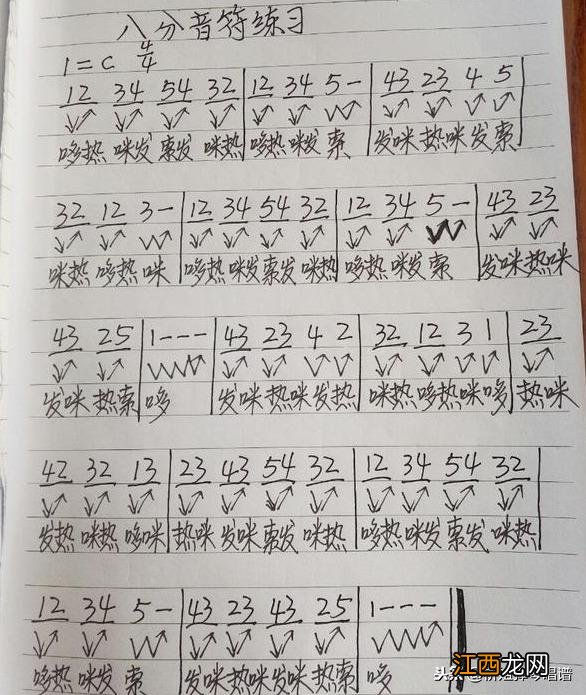 八分音符练习
1=C 4/4
12 34 54 32|12 34 5-|43 23 4 5
哆热 咪发 索发 咪热|哆热 咪发 索|发咪 热咪 发 索|
32 12 3-|12 34 54 32|12 34 5-|43 23
咪热 哆热 咪|哆热 咪发 索发 咪热|哆热 咪发 索|发咪 热咪
43 25|1---|43 23 4 2|32 12 3 1|23
发咪 热索|哆|发咪 热咪 发 热|咪热 哆热 咪 哆|热咪
42 32 13|23 43 54 32|12 34 54 32|
发热 咪热 哆咪|热咪 发咪 索发 咪热|哆热 咪发 索发 咪热|
12 34 5-|43 23 43 25|1---
哆热 咪发 索|发咪 热咪 发咪 热索|哆
江西龙网